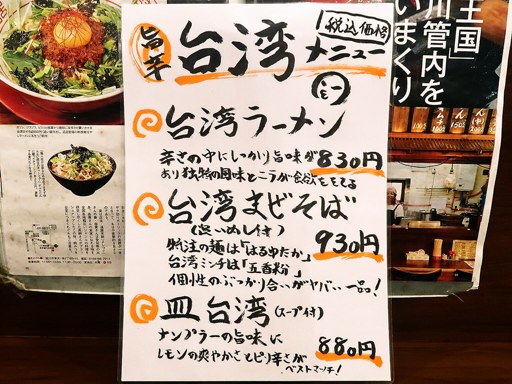 旨辛
台湾メニュー
税込価格
台湾ラーメン
辛さの中にしっかり旨味が
あり独特の風味とニラが食欲をそそる
830円
台湾まぜそば
(追いめし付)
930円
特注の麺は「はるゆたか」
台湾ミンチは「五香粉」
個性のぶっかり合いがヤバい一品!
皿台湾(スープ付)
ナンプラーの旨味に
レモンの爽やかさとピリ辛さが
ベストマッチ!
880円
王国」
川管内を
いまくり